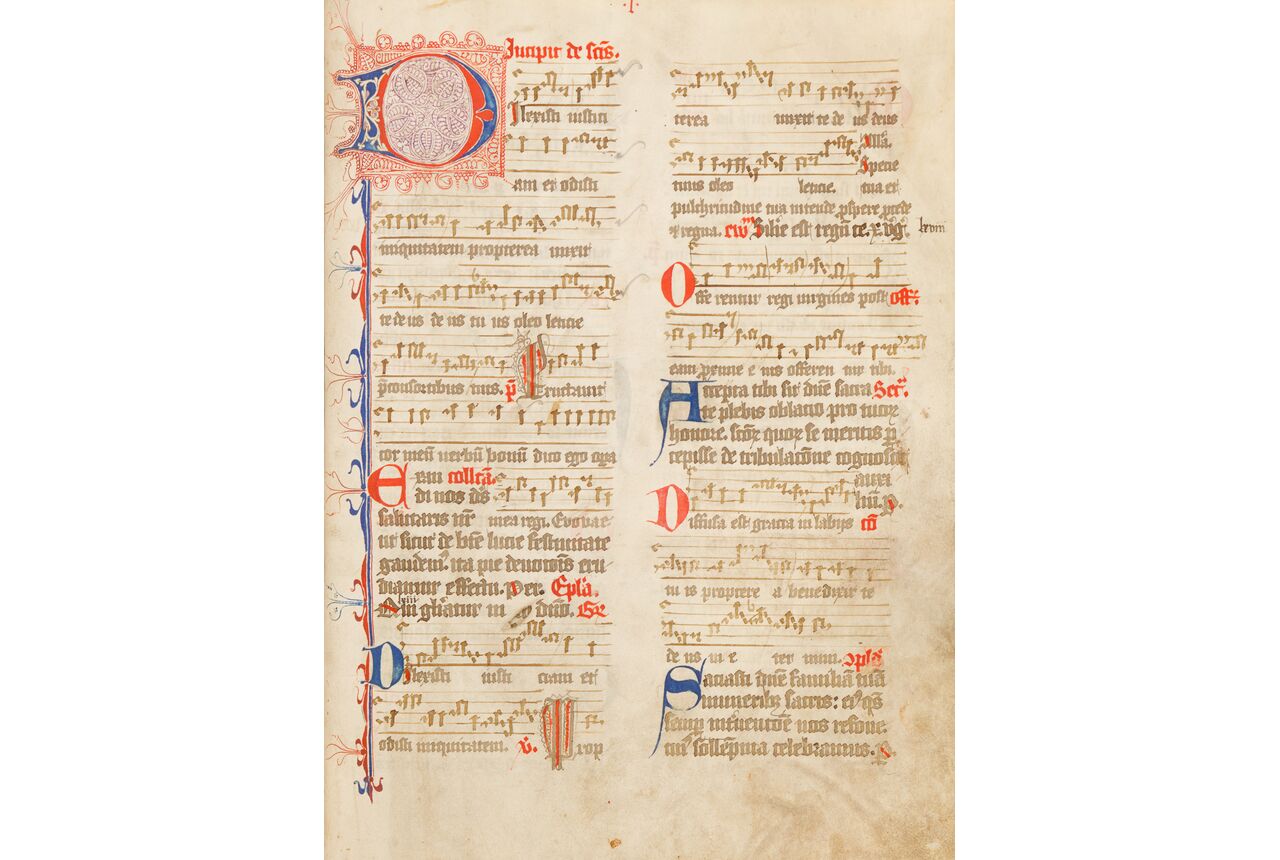 Incipit de scis.
Dilexisti iustici
am et odisti
iniquitatem propterea unxit
te de us de us tu us oleo leticie
p̄ consortibus tuis. p̄ Eructauit
cor meū uerbū bonū dico ego opa
Exau collcā
di nos ds̄
salutaris nr̄ mea regi. Euouae
ut sicut de bt̄e lucie festiuitate
gaudem᷒. ita pie deuotōis eru
diamur effectu. Per. Epla.
Qui gl̄iatur in dn̄o. Gr̄
Dilexisti iusti ciam et
odisti iniquitatem. v̄. Prop
terea unxit te de us deus
Alla.
Specie
tuus oleo leticie. tua et
pulchritudine tua intende ꝓspere ꝓcede
et regna. ew̄m Sile est regnū ce. x. v̄gi. lxviii
Offe rentur regi uirgines post off.
eam proxime e ius offeren tur tibi.
Accepta tibi sit dn̄e sacra Secr.
te plebis oblatio pro tuoꝝ
honore. scōꝝ quoꝝ se meritis p̄
cepisse de tribulatōne cognoscit
auxi
liū. P.
Diffusa est gracia in labijs cō
tu is proptere a benedixit te
de us in e ter num. Cōplā
Saciasti dn̄e familiā tuā
muneribꝫ sacris: ei᷒ qs̄
semꝑ inteuentōe nos refoue.
cui᷒ sollēpnia celebramus. P.